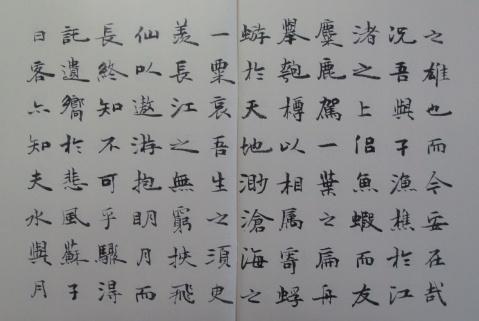 之雄也而今安在哉
况吾與子漁樵於江
渚之上侣魚蝦而友
麋鹿駕一葉之扁舟
舉匏樽以相属寄蜉
蝣於天地渺滄海之
一粟哀吾生之須臾
羨長江之無窮挾飛
仙以遨游抱明月而
長終知不可乎驟得
託遺響於悲風蘇子
曰客亦知夫水與月